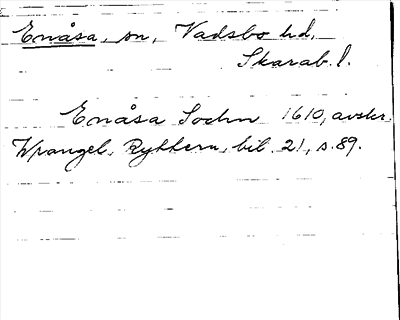 Enåsa, sn, Vadsbo hd,
Skarab. l.
Enåsa Sochn 1610, avskr.
Wrangel, Rytthern, bil. 21, s. 89.